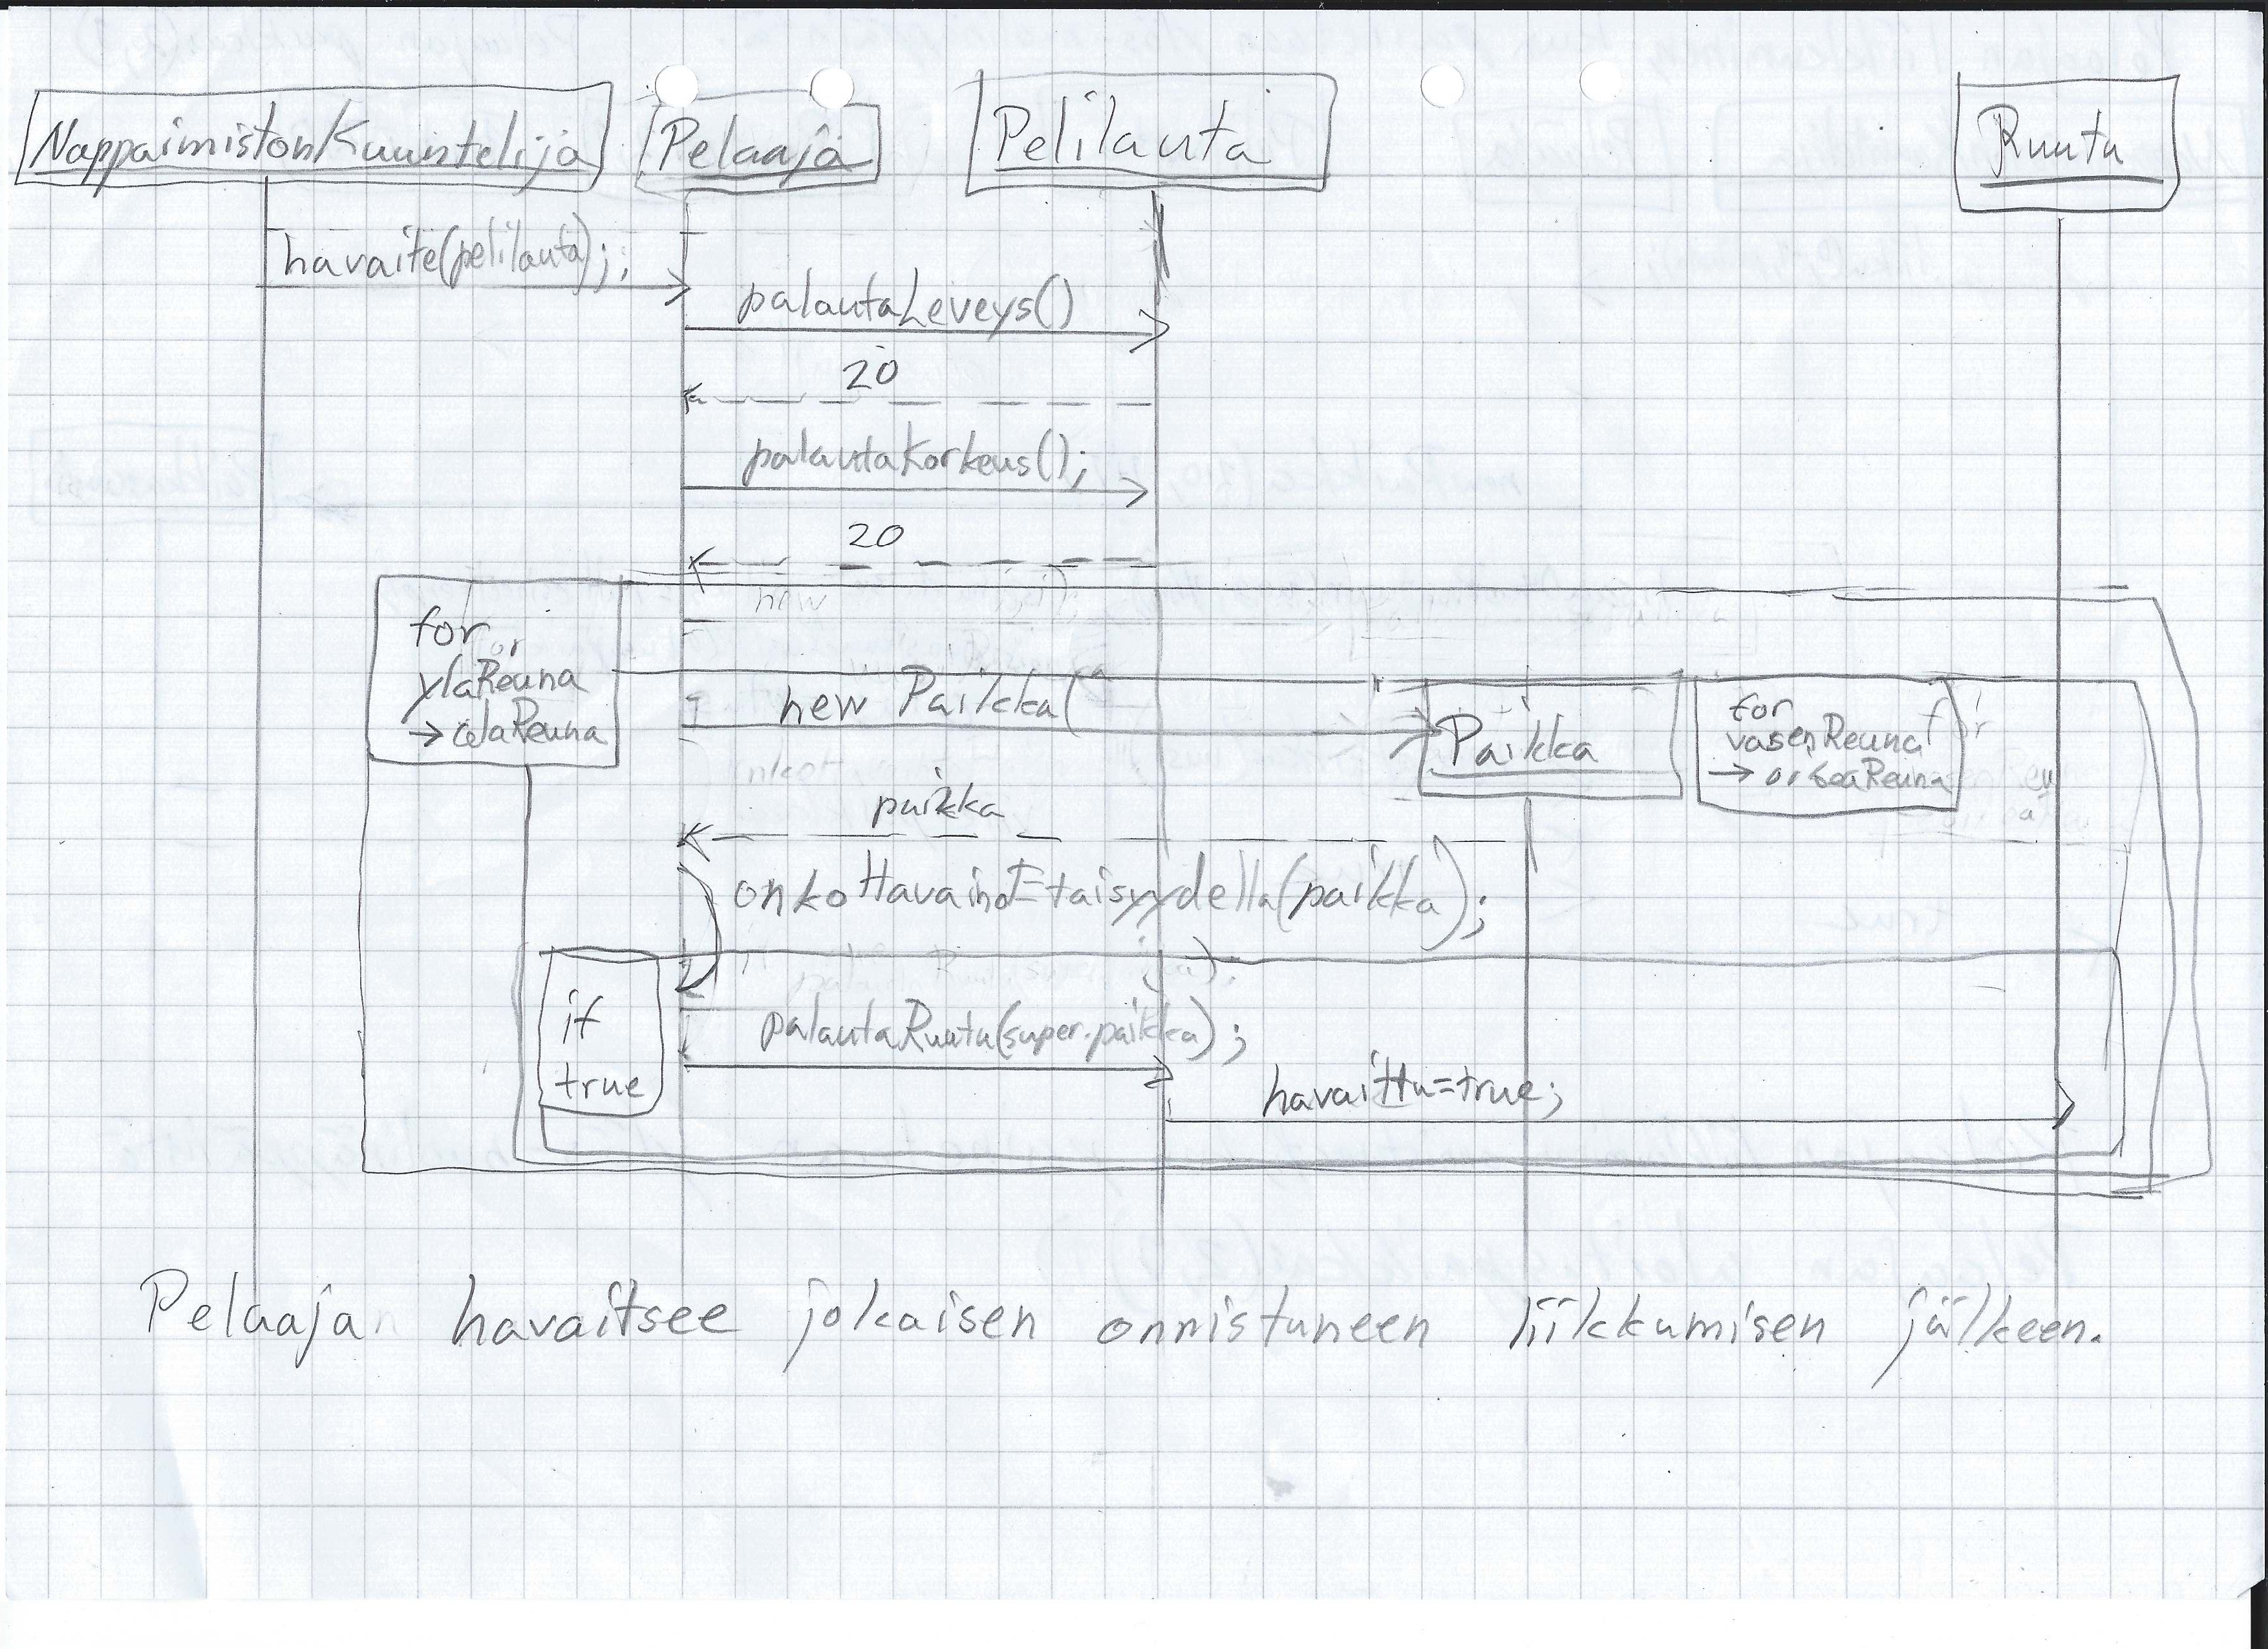 NappaimistonKuuntelija Pelaaja Pelilauta Ruutu
havaite(pelilauta);;
palautaLeveys()
20
palautaKorkeus();
20
new
for
ylaReuna
→ alaReuna
new Paikka(
Paikka
for
vasenReuna
→ oikeaReuna
paikka
onkoHavainoEtaisyydella(paikka);
if
true
palautaRuutu(super.paikka);
havaittu=true;
Pelaajan havaitsee jokaisen onnistuneen liikkumisen jälkeen.